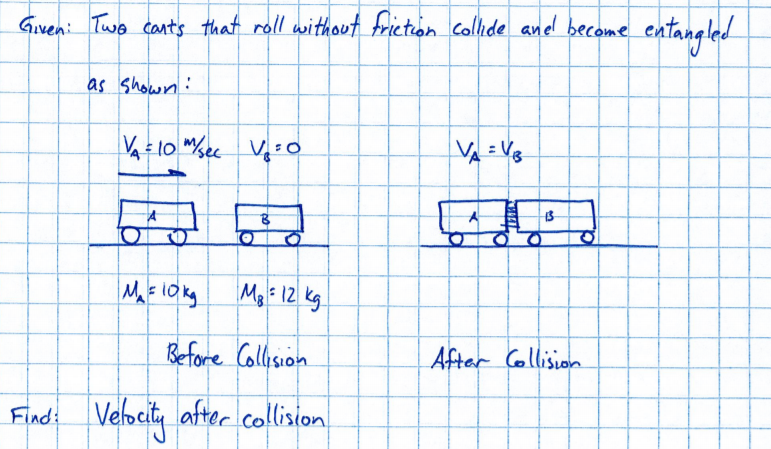 Given: Two carts that roll without friction collide and become entangled
as shown:
V_A = 10 m/sec V_B = 0 V_A = V_B
A B A B
M_A = 10 kg M_B = 12 kg
Before Collision After Collision
Find: Velocity after collision